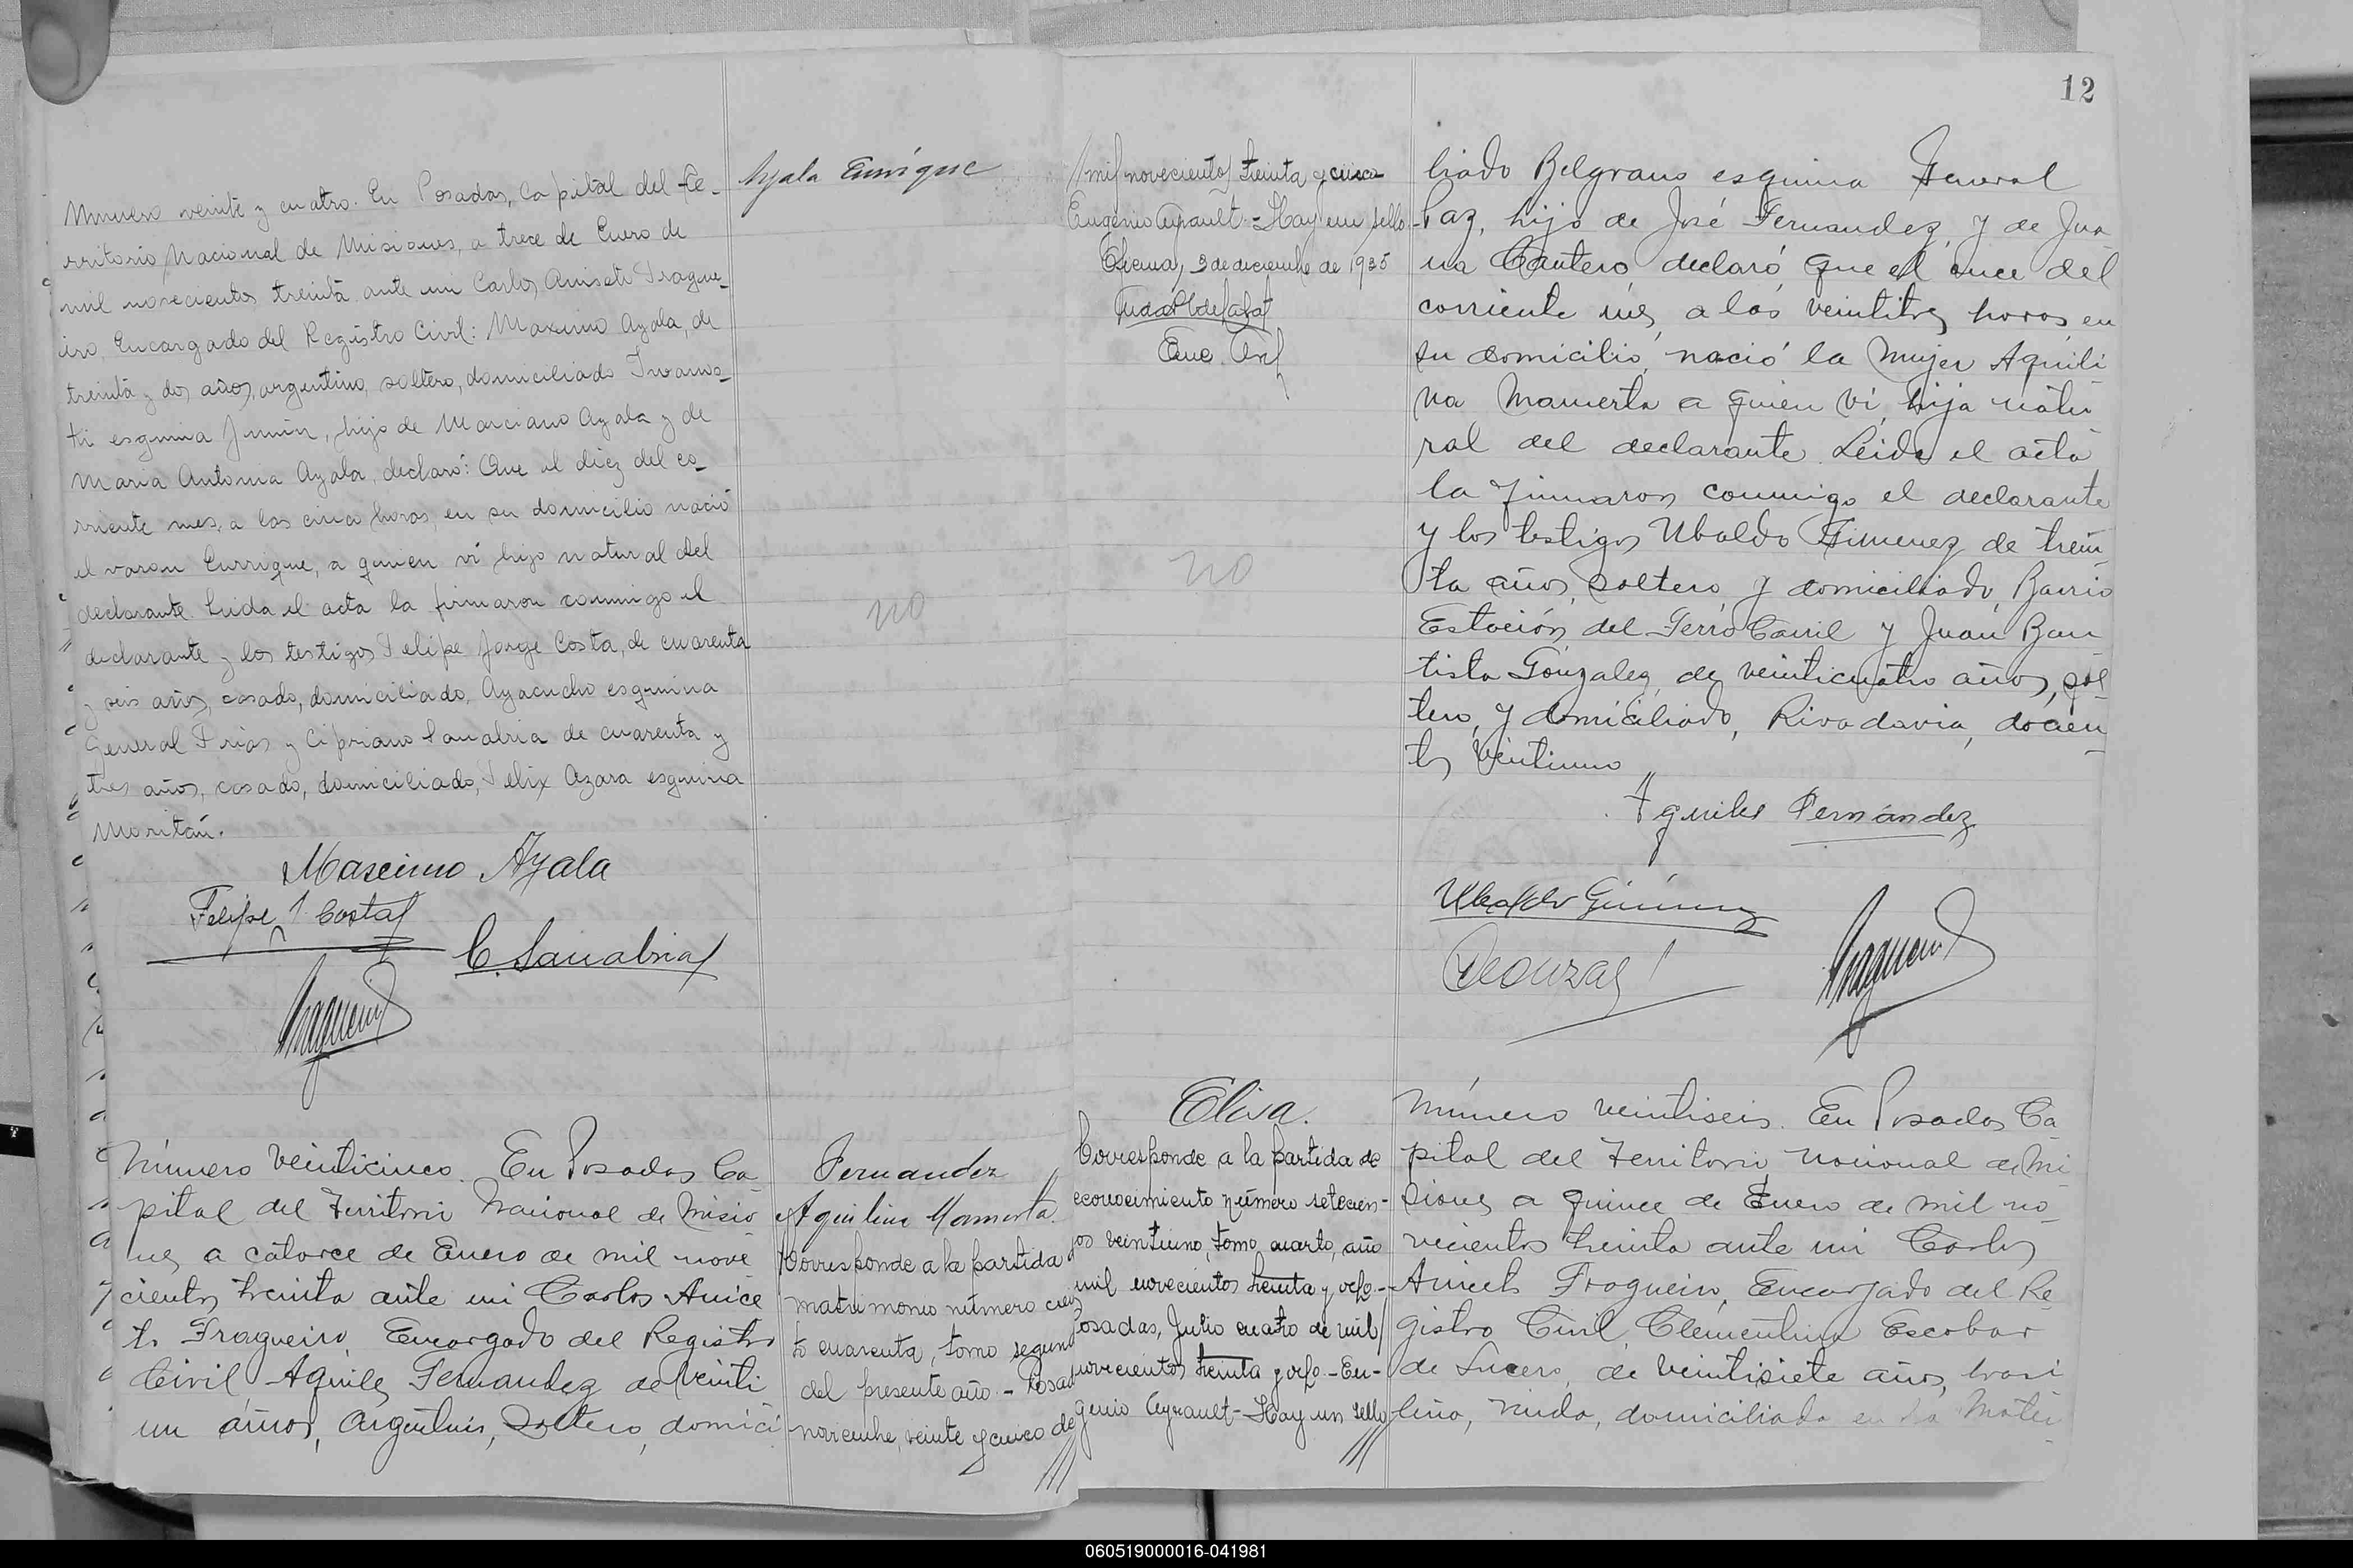 Número veinte y cuatro. En Posadas, Capital del Te-
rritorio Nacional de Misiones, a trece de Enero de
mil novecientos treinta ante mi Carlos Aniseto Frague-
iro, Encargado del Registro Civil: Maximo Ayala, de
treinta y dos años, argentino, soltero, domiciliado
ti esquina Junin, hijo de Marciano Ayala y de
Maria Antonia Ayala, declaró: Que el diez del co-
rriente mes, a las cinco horas, en su domicilio nació
el varon Enrrique, a quien vi hijo natural del
declarante. Leida el acta la firmaron conmigo el
declarante y los testigos Felipe Jorge Costa, de cuarenta
y seis años, casado, domiciliado, Ayacucho esquina
General Frias y Cipriano Sanabria de cuarenta y
tres años, casado, domiciliado, Felix Azara esquina
Moritán.
Ayala Enrique
no
Mascimo Ayala
Felipe J Costa
C. Sanabria
Fragueiro
Número veinticinco. En Posadas Ca-
pital del Territorio Nacional de Misio
nes a catorce de Enero de mil nove
cientos treinta ante mi Carlos Anice
to Fragueiro, Encargado del Registro
Civil Aquiles Fernandez de veinti
un años, Argentino, Soltero, domici
Fernandez
Aquilina Mamerta.
Corresponde a la partida
matrimonio número cien
to cuarenta, tomo segundo
del presente año.- Posad
noviembre, veinte y cinco de
12
mil novecientos treinta y cinco
Eugenio Ayrault - Hay un sello-
3 de diciembre de 1935
no
liado Belgrano esquina General
Paz, hijo de José Fernandez, y de Jua
na Cantero, declaró que el once del
corriente mes, a las veintitres horas en
su domicilio, nació la mujer Aquili
na Mamerta a quien vi, hija natu
ral del declarante. Leida el acta
la firmaron conmigo el declarante
y los testigos Ubaldo Gimenez de trein
ta años, soltero, y domiciliado, Barrio
Estación del Ferro Carril y Juan Bau
tista Gonzalez, de veinticuatro años, sol
tero, y domiciliado, Rivadavia, docien
tos veintiuno
Aquiles Fernández
Ubaldo Gimenez
Fragueiro
Elisa.
Corresponde a la partida de
econocimiento número setecien-
os veintiuno, tomo cuarto, año
mil novecientos treinta y ocho.-
osadas, Julio cuatro de mil
novecientos treinta y ocho.- Eu-
genio Ayrault - Hay un sello
Número veintiseis. En Posadas Ca
pital del Territorio Nacional de Mi
siones a quince de Enero de mil no
vecientos treinta ante mi Carlos
Aniceto Fragueiro, Encargado del Re
gistro Civil Clementina Escobar
de Lucero, de veintisiete años, brasi
leña, viuda, domiciliada en la Mater
060519000016-041981